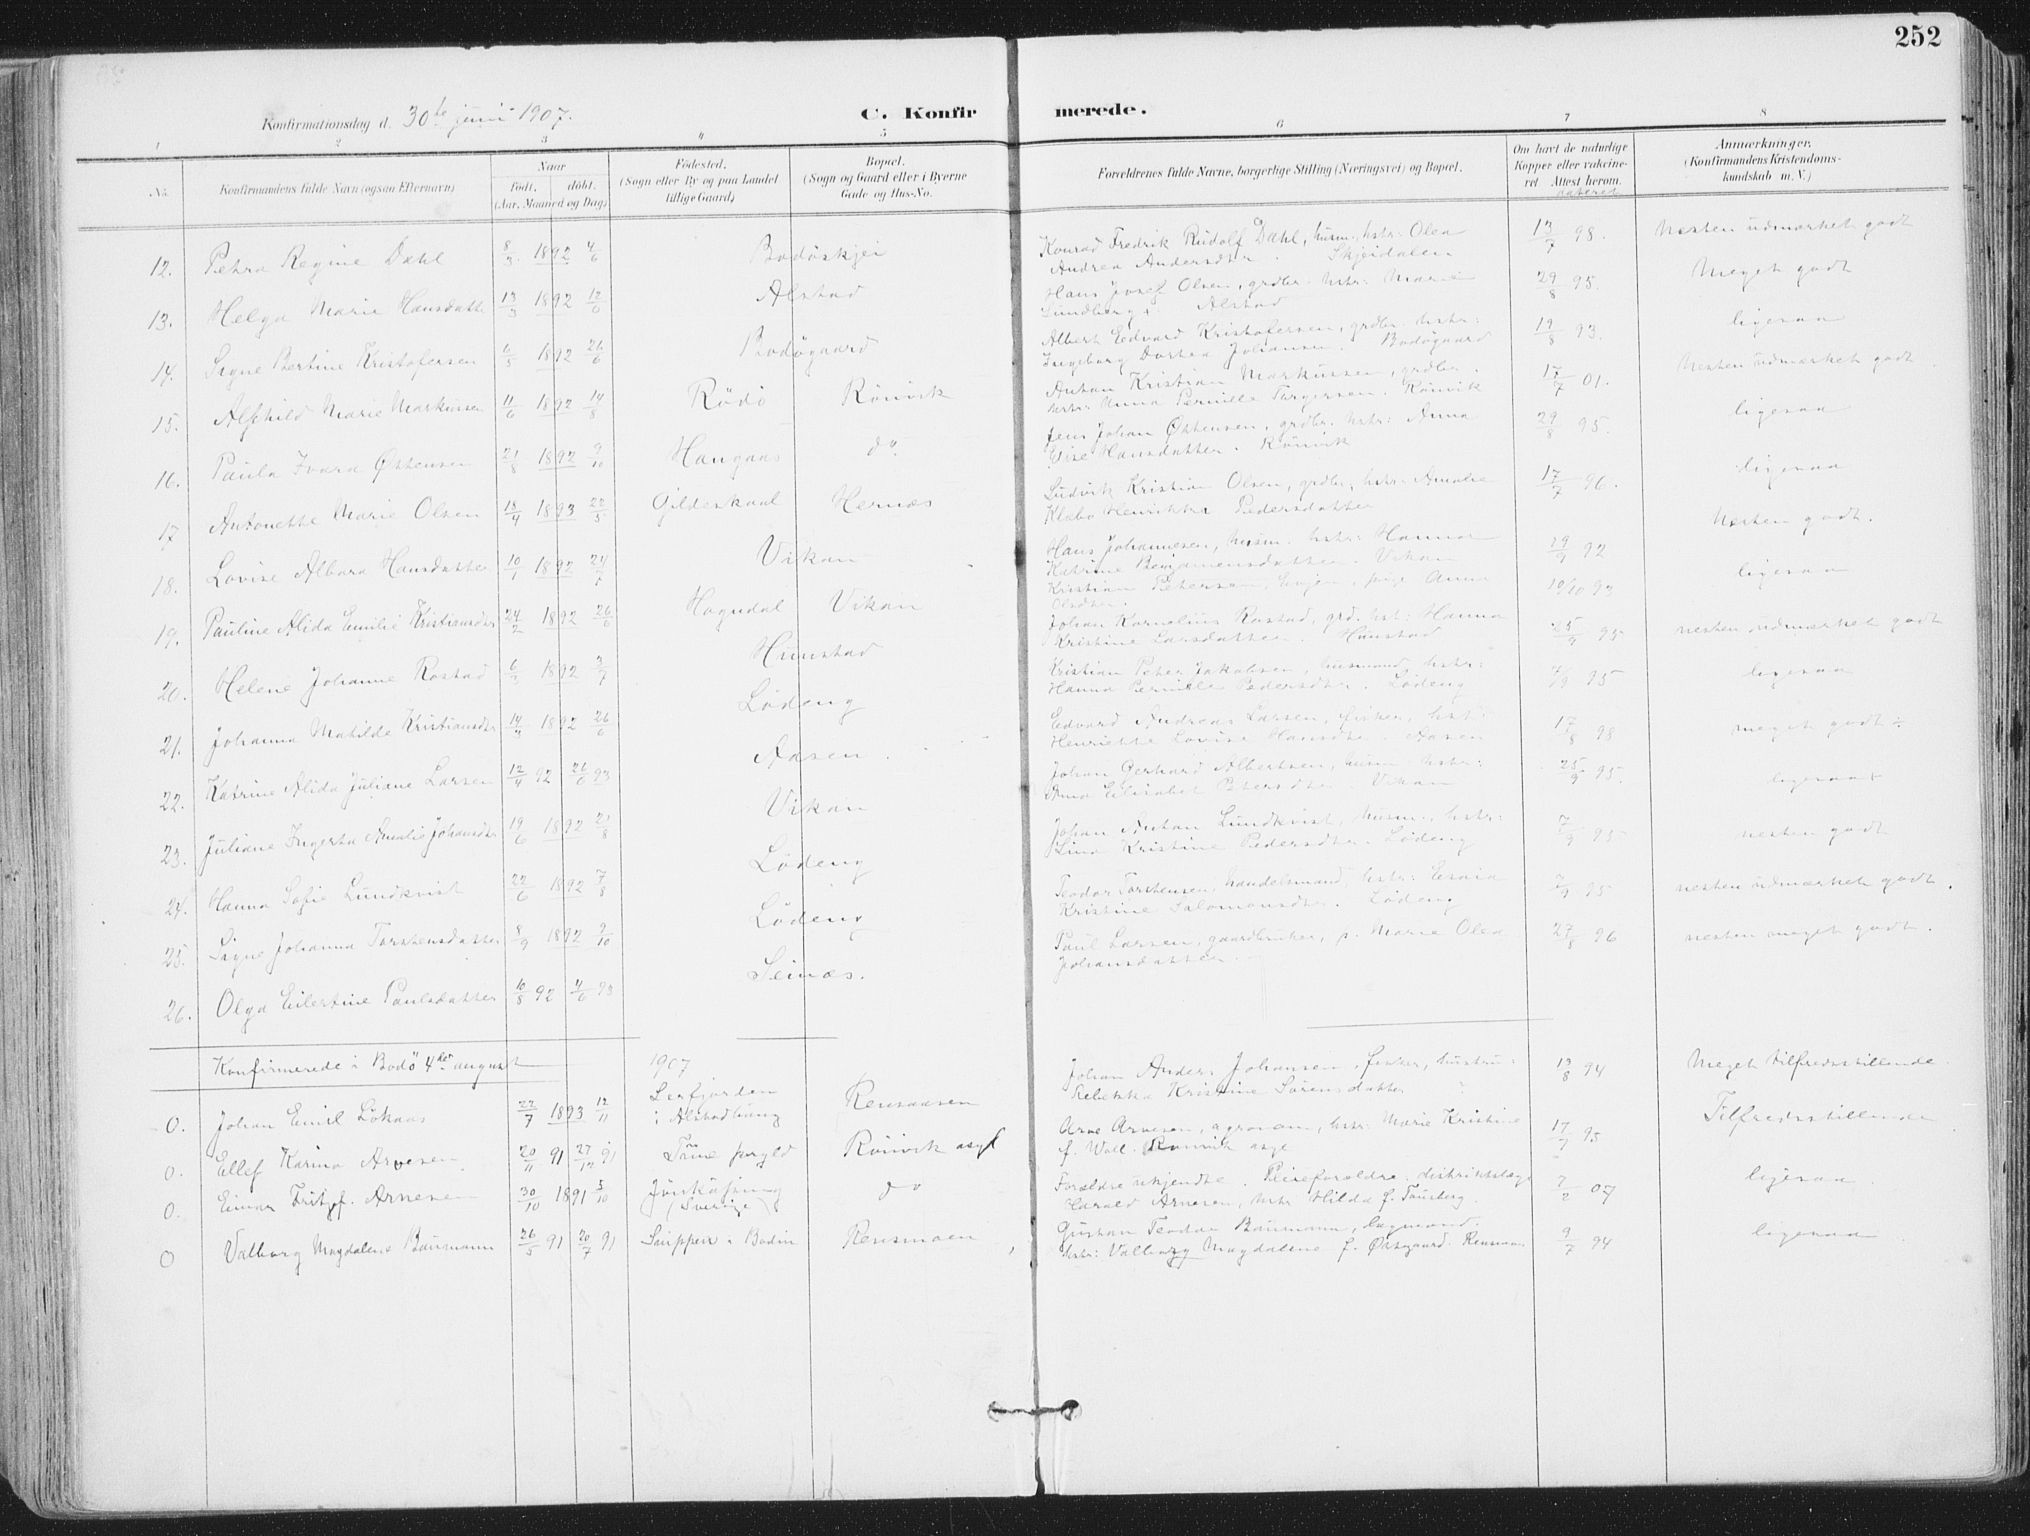 252
Konfirmationsdag d. 30te juni 1907.
C. Konfirmerede.
1 2 3 4 5 6 7 8
No.
Konfirmandens fulde Navn (ogsaa Efternavn)
Naar
født. døbt.
(Aar, Maaned og Dag)
Fødested.
(Sogn eller By og paa Landet
tillige Gaard)
Bopæl.
(Sogn og Gaard eller i Byerne
Gade og Hus-No.
Forældrenes fulde Navne, borgerlige Stilling (Næringsvei) og Bopæl.
Om havt de naturlige
Kopper eller vakcine-
ret Attest herom.
dateret
Anmærkninger.
(Konfirmandens Kristendoms-
kundskab m. V.)
12. Petra Regine Dahl 8/3 1892 4/6 Bodøskjei Konrad Fredrik Rudolf Dahl, husm., hstr: Olea 13/7 98. Nesten udmærket godt
Andrea Andersdtr. Skjeidalen
13. Helga Marie Hansdatter 13/3 1892 12/6 Alstad Hans Josef Olsen, grdbr. hstr: Marie 29/8 95. Meget godt
Lundberg, Alstad
14. Signe Bertine Kristofersen 6/5 1892 26/6 Bodøgaard Albert Edvard Kristofersen, grdbr. hstr: 19/8 93. ligesaa
Ingeborg Dortea Johansen. Bodøgaard
15. Alfhild Marie Markussen 11/6 1892 14/8 Rødø Rønvik Anton Kristian Markussen, grdbr. 17/7 01. Nesten udmærket godt
hstr: Anna Pernille Torgersen. Rønvik
16. Paula Ivara Østensen 21/8 1892 9/10 Haugaas do Jens Johan Østensen, grdbr. hstr: Anna 29/8 95. ligesaa
Elise Hansdatter. Rønvik
17 Antonette Marie Olsen 18/4 1893 22/5 Gildeskaal Hernæs Ludvik Kristian Olsen, grdbr, hstr: Amalie 17/7 96. ligesaa
Klabo Henrikke Pedersdatter
18. Lovise Albara Hansdatter 10/1 1892 24/7 Vikan Hans Johannesen, husm. hstr: Hanna 29/9 92 Nesten godt.
Katrine Benjamensdatter. Vikan
19. Pauline Alida Emilie Kristiansdtr 24/2 1892 26/6 Hogndal Vikan Kristian Petersen, ungk., pige Anna 10/10 93 ligesaa
Olsdtr.
20. Helene Johanne Rostad 6/3 1892 3/7 Hunstad Johan Kornelius Rostad, grd. hst: Hanna 25/9 95 nesten udmærket godt
Kristine Larsdatter. Hunstad
21. Johanna Matilde Kristiansdtr 14/4 1892 26/6 Lødeng Kristian Peter Jakobsen, husmand, hstr: 7/9 95 ligesaa
Hanna Pernille Pedersdtr. Lødeng
22. Katrine Alida Juliane Larsen 12/4 92 26/6 93 Aasen. Edvard Andreas Larsen, fisker, hst. 17/8 98 meget godt ÷
Henriette Lovise Hansdtr. Aasen
23. Juliane Ingerta Amalie Johansdtr 19/6 1892 21/8 Vikan Johan Gerhard Albertsen, husm hstr: 25/9 95. ligesaa
Anna Elisabet Petersdtr. Vikan
24. Hanna Sofie Lundkvist 22/6 1892 7/8 Lødeng Johan Anton Lundkvist, husm., hstr: 7/9 95 nesten godt
Lina Kristine Pedersdtr. Lødeng
25. Signe Johanna Torstensdatter 8/9 1892 9/10 Lødeng Teodor Torstensen, handelsmand, hstr: Esaia 7/9 95 nesten udmærket godt.
Kristine Salomonsdtr. Lødeng
26. Olga Eilertine Paulsdatter 10/8 92 4/6 93 Seinæs. Paul Larsen, gaardbruker, p. Marie Olea 27/8 96 nesten meget godt.
Johansdatter.
Konfirmerede i Bodø 4de august 1907
0. Johan Emil Løkaas 22/7 1893 12/11 Lerfjorden i Alstadhaug Rensaasen Johan Anders Johansen, fisker, hustru: 13/8 94 Meget tilfredsstillende
Rebekka Kristine Sørensdatter
0. Ellef Karino Arnesen 20/11 91 27/12 91 Rønvik asyl Arne Arnesen, agronom, hstr: Marie Kristine 17/7 95 Tilfredsstillende
f. Wall. Rønvik asyl
0. Einar Fritjof Arnesen 30/10 1891 5/10 Jönköping (Sverige) do Forældre ukjendte. Pleieforældre: distriktslæge 7/2 07 ligesaa
Harald Arnesen, hstr Hilda f. Tønsberg.
0 Valborg Magdalene Baumann 26/5 91 20/7 91 i Bodin Rensmoen Gustav Teodor Baumann, lagmand. 9/7 94 ligesaa
hstr: Valborg Magdalene f. Østgaard. Rensmoen